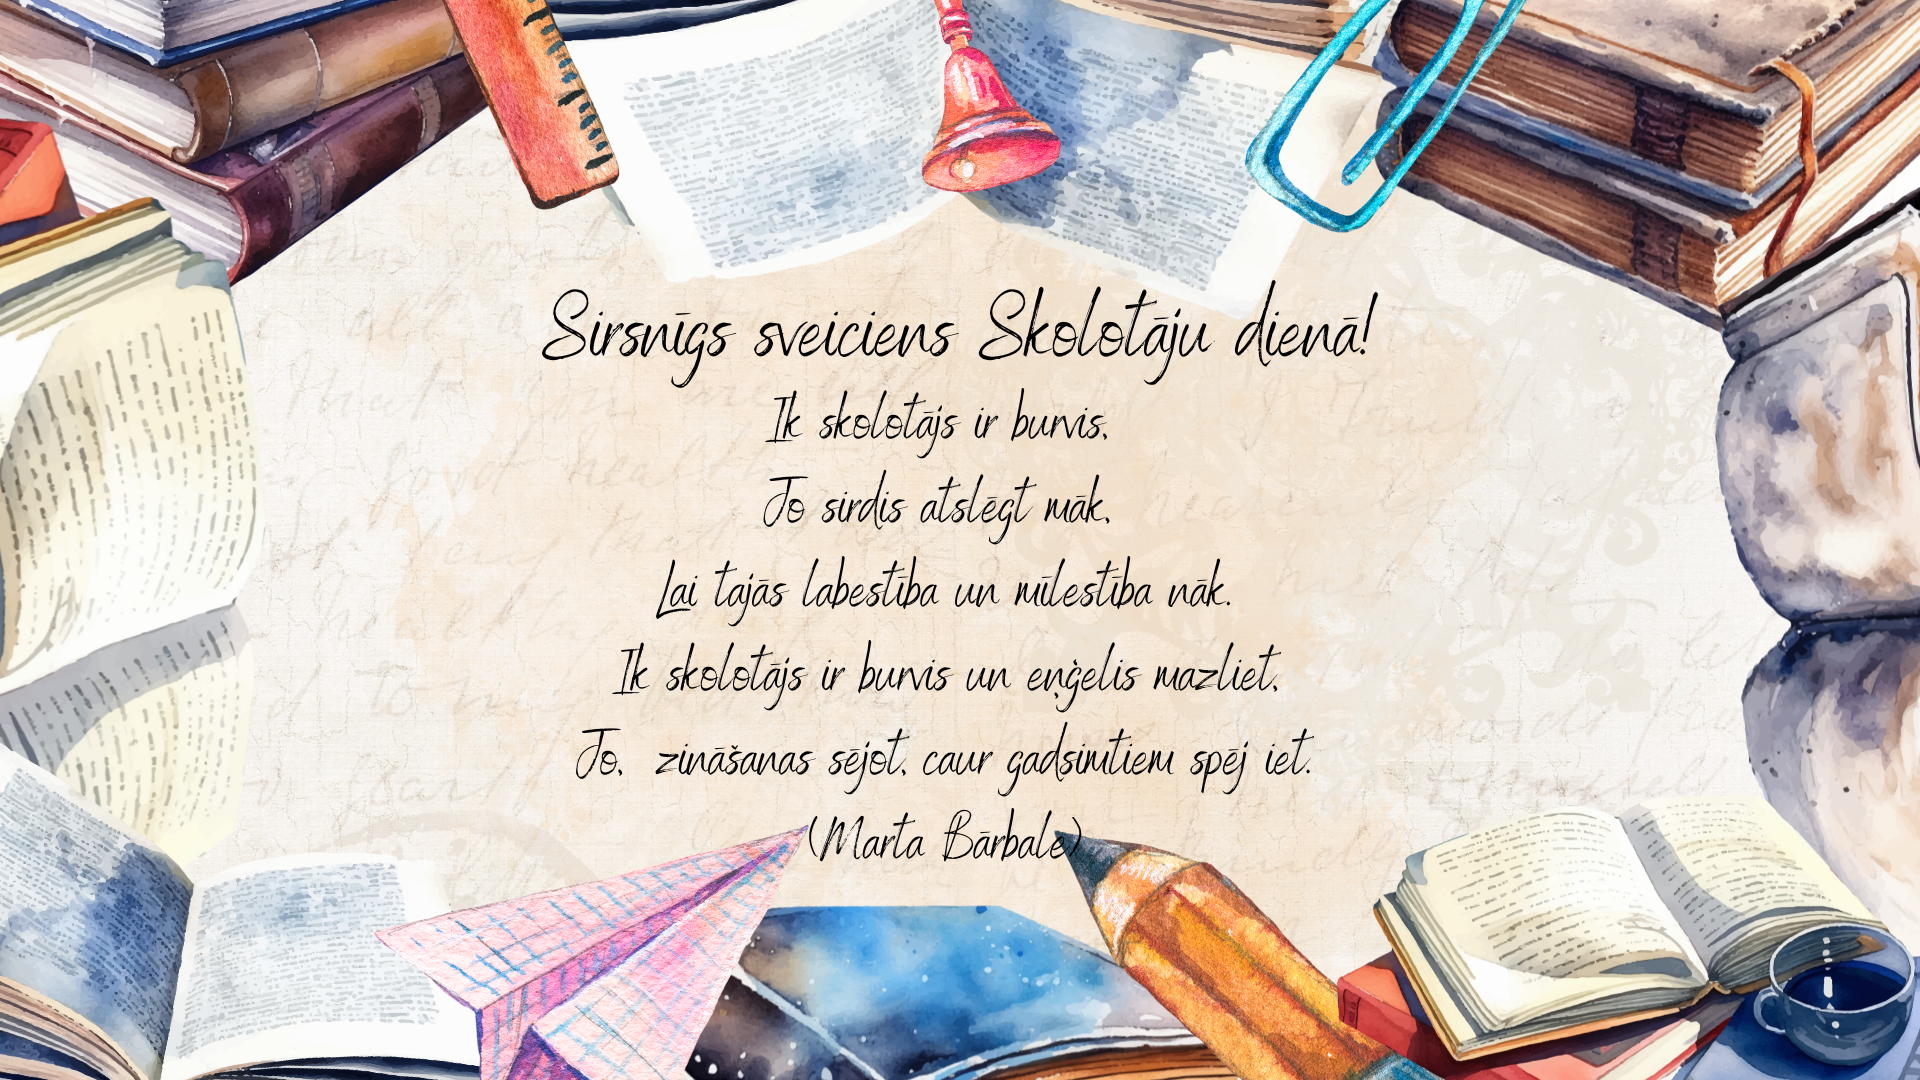 Sirsnīgs sveiciens Skolotāju dienā!
Ik skolotājs ir burvis,
Jo sirdis atslēgt māk,
Lai tajās labestība un mīlestība nāk.
Ik skolotājs ir burvis un eņģelis mazliet,
Jo, zināšanas sējot, caur gadsimtiem spēj iet.
(Marta Bārbale)